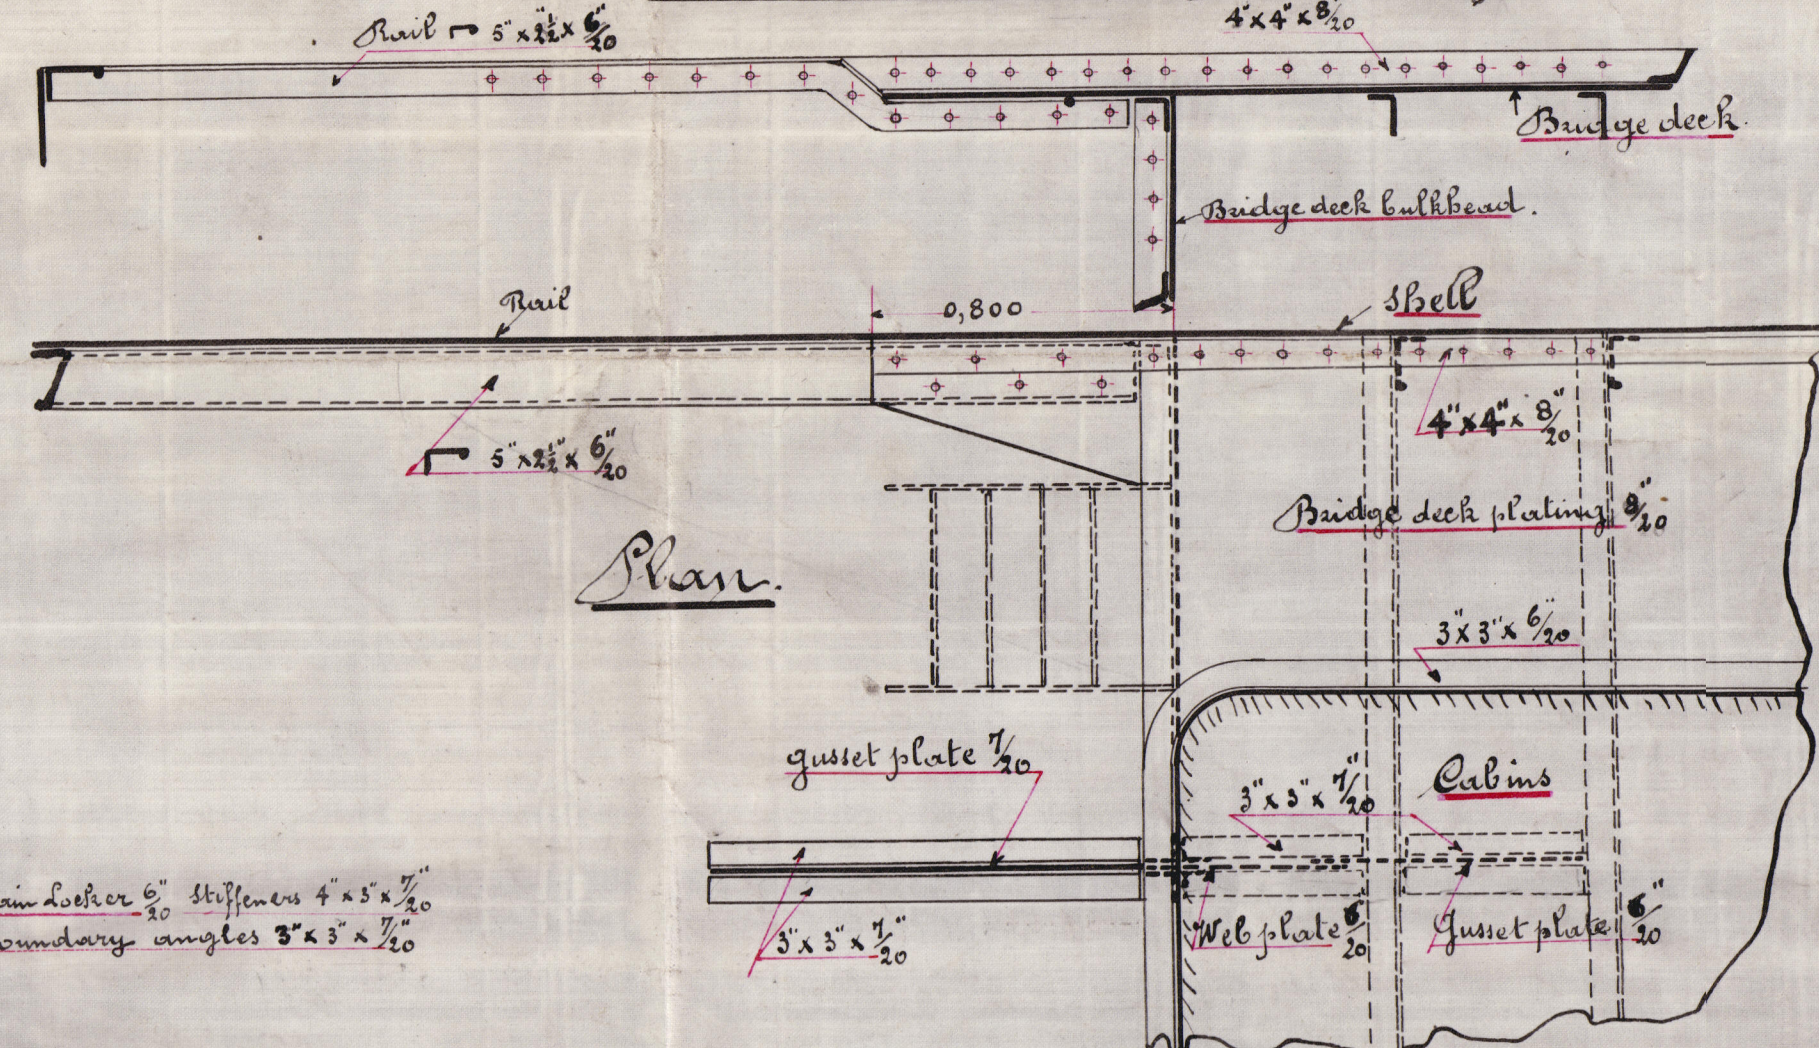 Rail 5" x 2½" x 6/20"
4" x 4" x 8/20"
Bridge deck.
Bridge deck bulkhead.
Rail
0,800
Shell
4" x 4" x 8/20"
5" x 2½" x 6/20"
Bridge deck plating 8/20"
Plan.
3" x 3" x 6/20"
gusset plate 7/20"
3" x 3" x 7/20"
Cabins
ain Locker 6/20" Stiffeners 4" x 3" x 7/20"
oundary angles 3" x 3" x 7/20"
3" x 3" x 7/20"
Web plate 6/20"
Gusset plate 6/20"